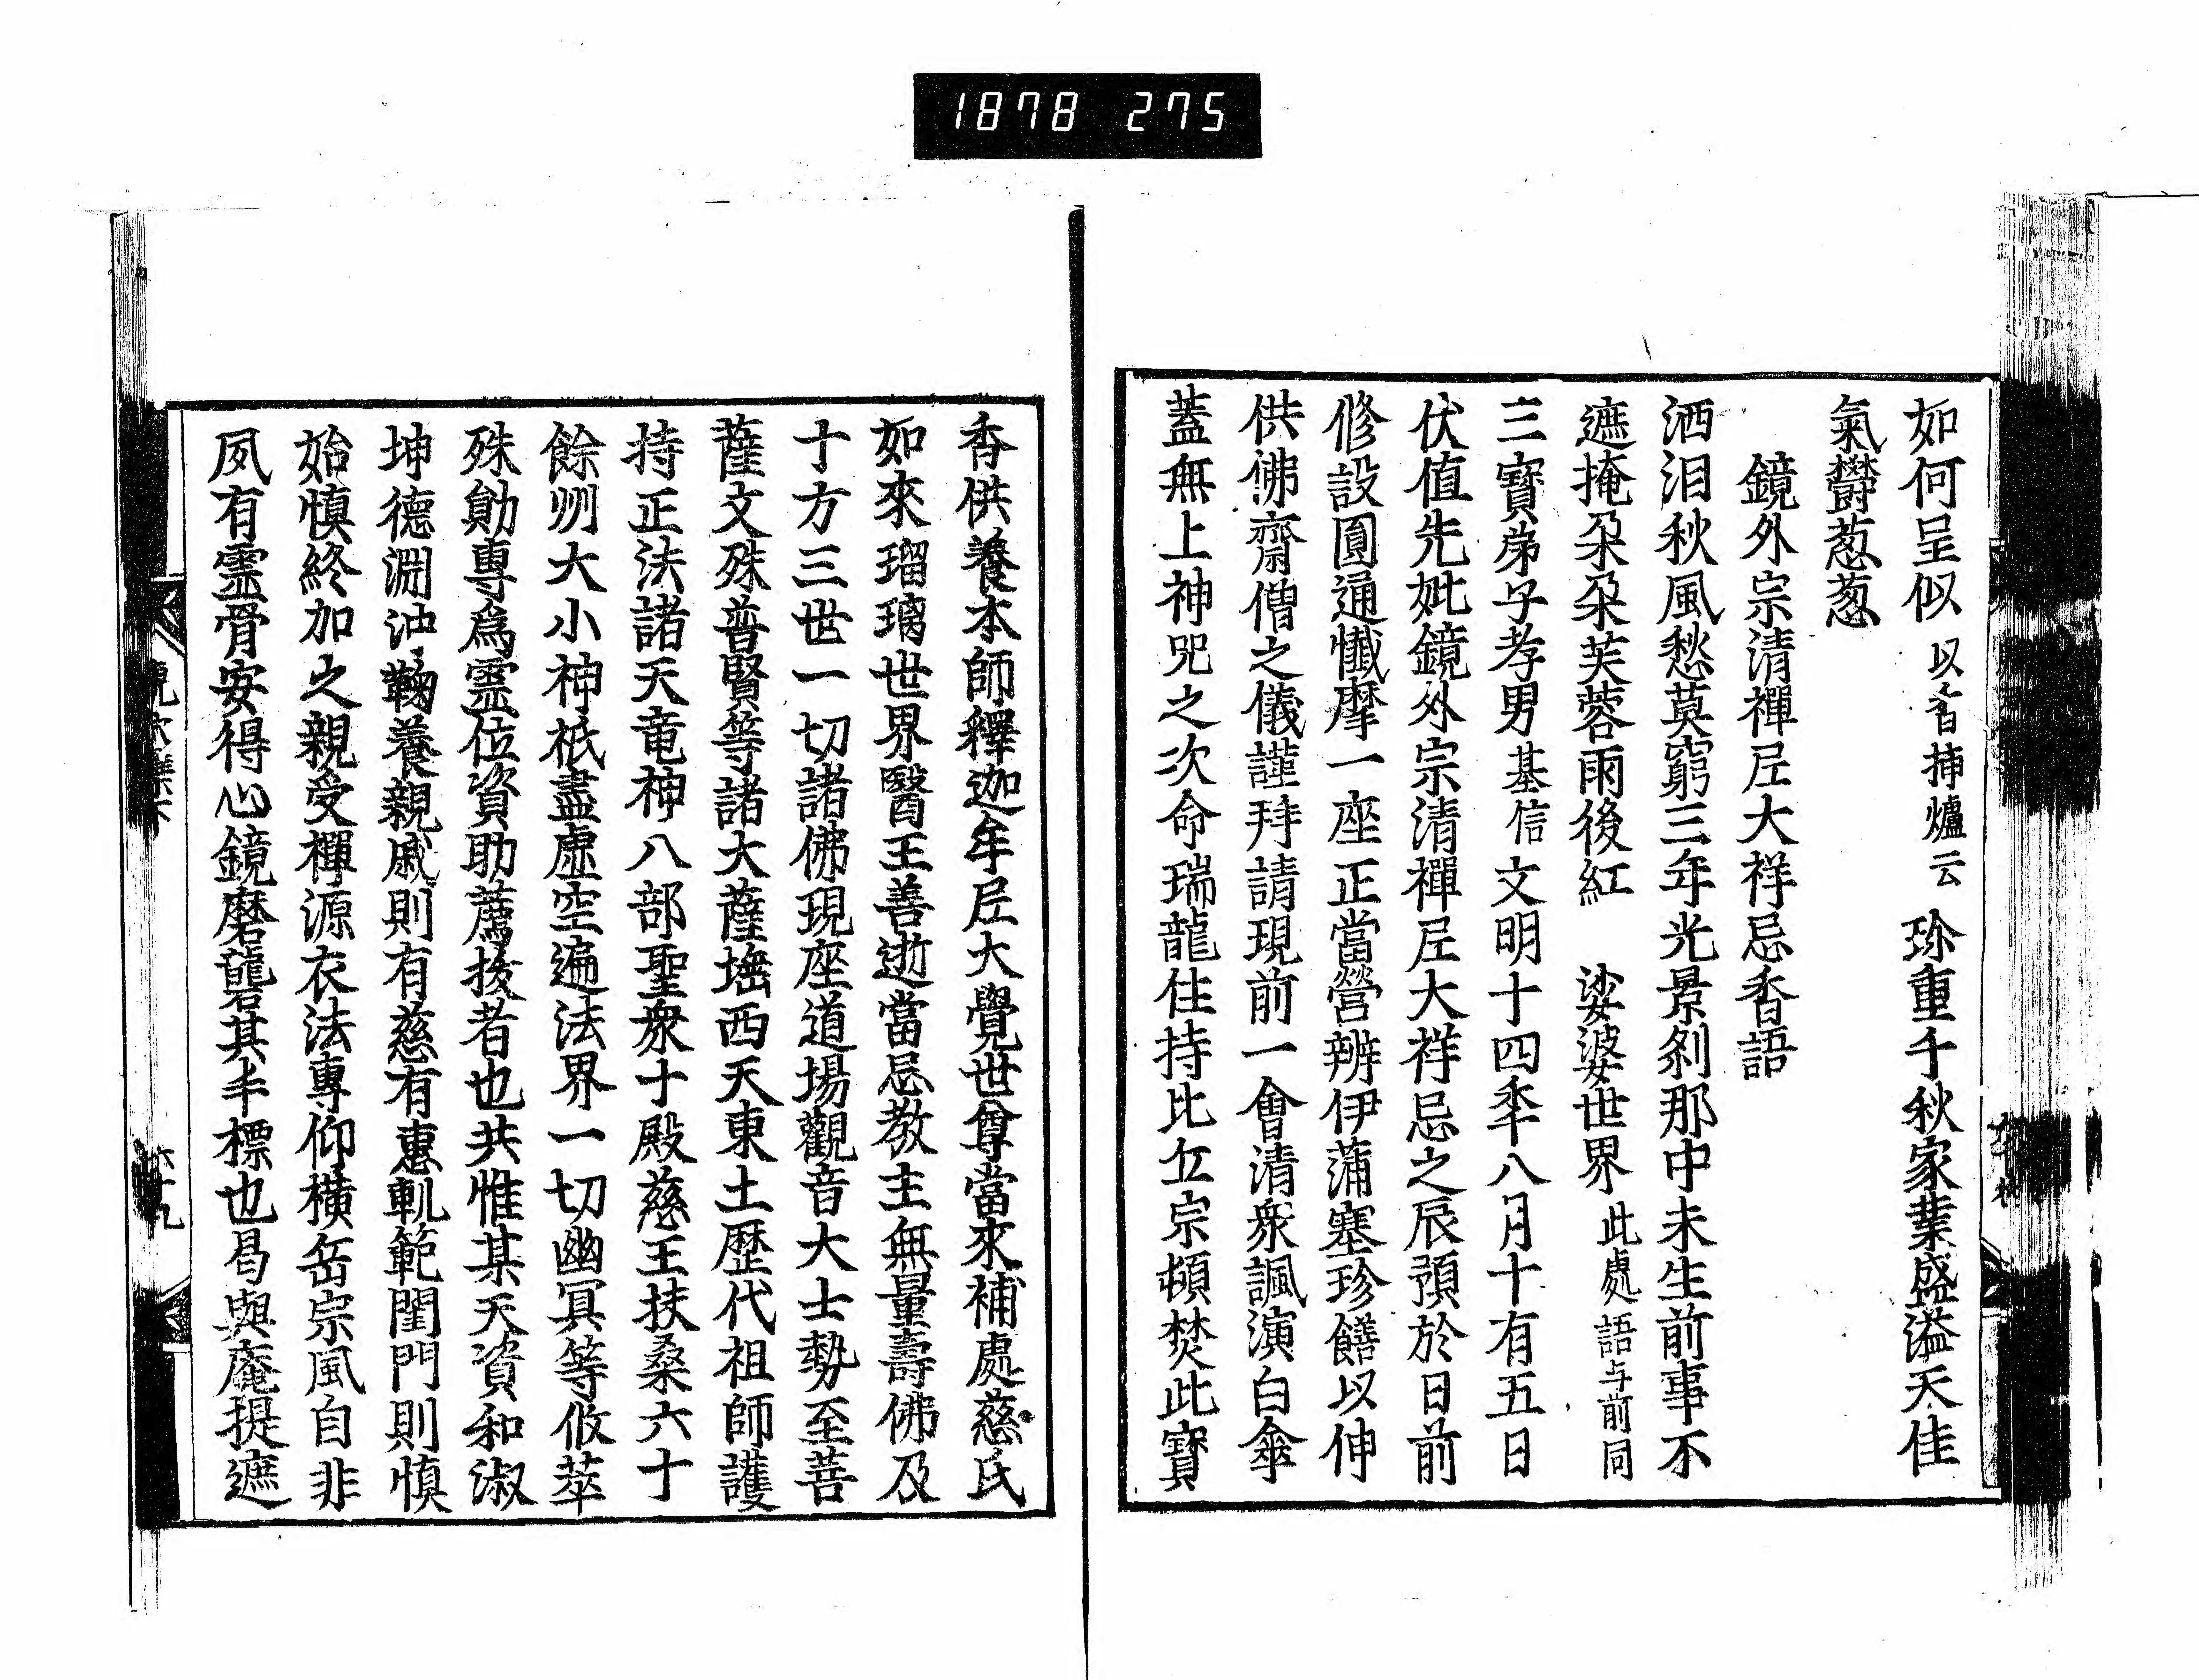 1878 275
如何呈似以香挿爐云珍重千秋家業盛溢天佳
氣欝葱葱
鏡外宗清禪尼大祥忌香語
洒泪秋風愁莫窮三年光景刹那中未生前事不
遮掩朶朶芙蓉雨後紅 娑婆世界此處語与前同
三寶弟子孝男基信文明十四秊八月十有五日
伏値先妣鏡外宗清禪尼大祥忌之辰預於日前
修設圓通懺摩一座正當營辨伊蒲塞珍饍以伸
供佛齋僧之儀謹拜請現前一會清衆諷演白傘
蓋無上神咒之次命瑞龍住持比丘宗頓焚此寳
香供養本師釋迦牟尼大覺世尊當來補處慈氏
如來瑠璃世界醫王善逝當忌教主無量壽佛及
十方三世一切諸佛現座道塲觀音大士勢至菩
薩文殊普賢等諸大薩埵西天東土歴代祖師護
持正法諸天竜神八部聖衆十殿慈王扶桑六十
餘州大小神祇盡虚空遍法界一切幽冥等攸萃
殊勛專爲霊位資助薦拔者也共惟某天資和淑
坤德淵冲鞠養親戚則有慈有惠軌範閨門則慎
始慎終加之親受禪源衣法專仰横岳宗風自非
夙有霊骨安得心鏡磨礲其半標也曷與庵提遮
六十九